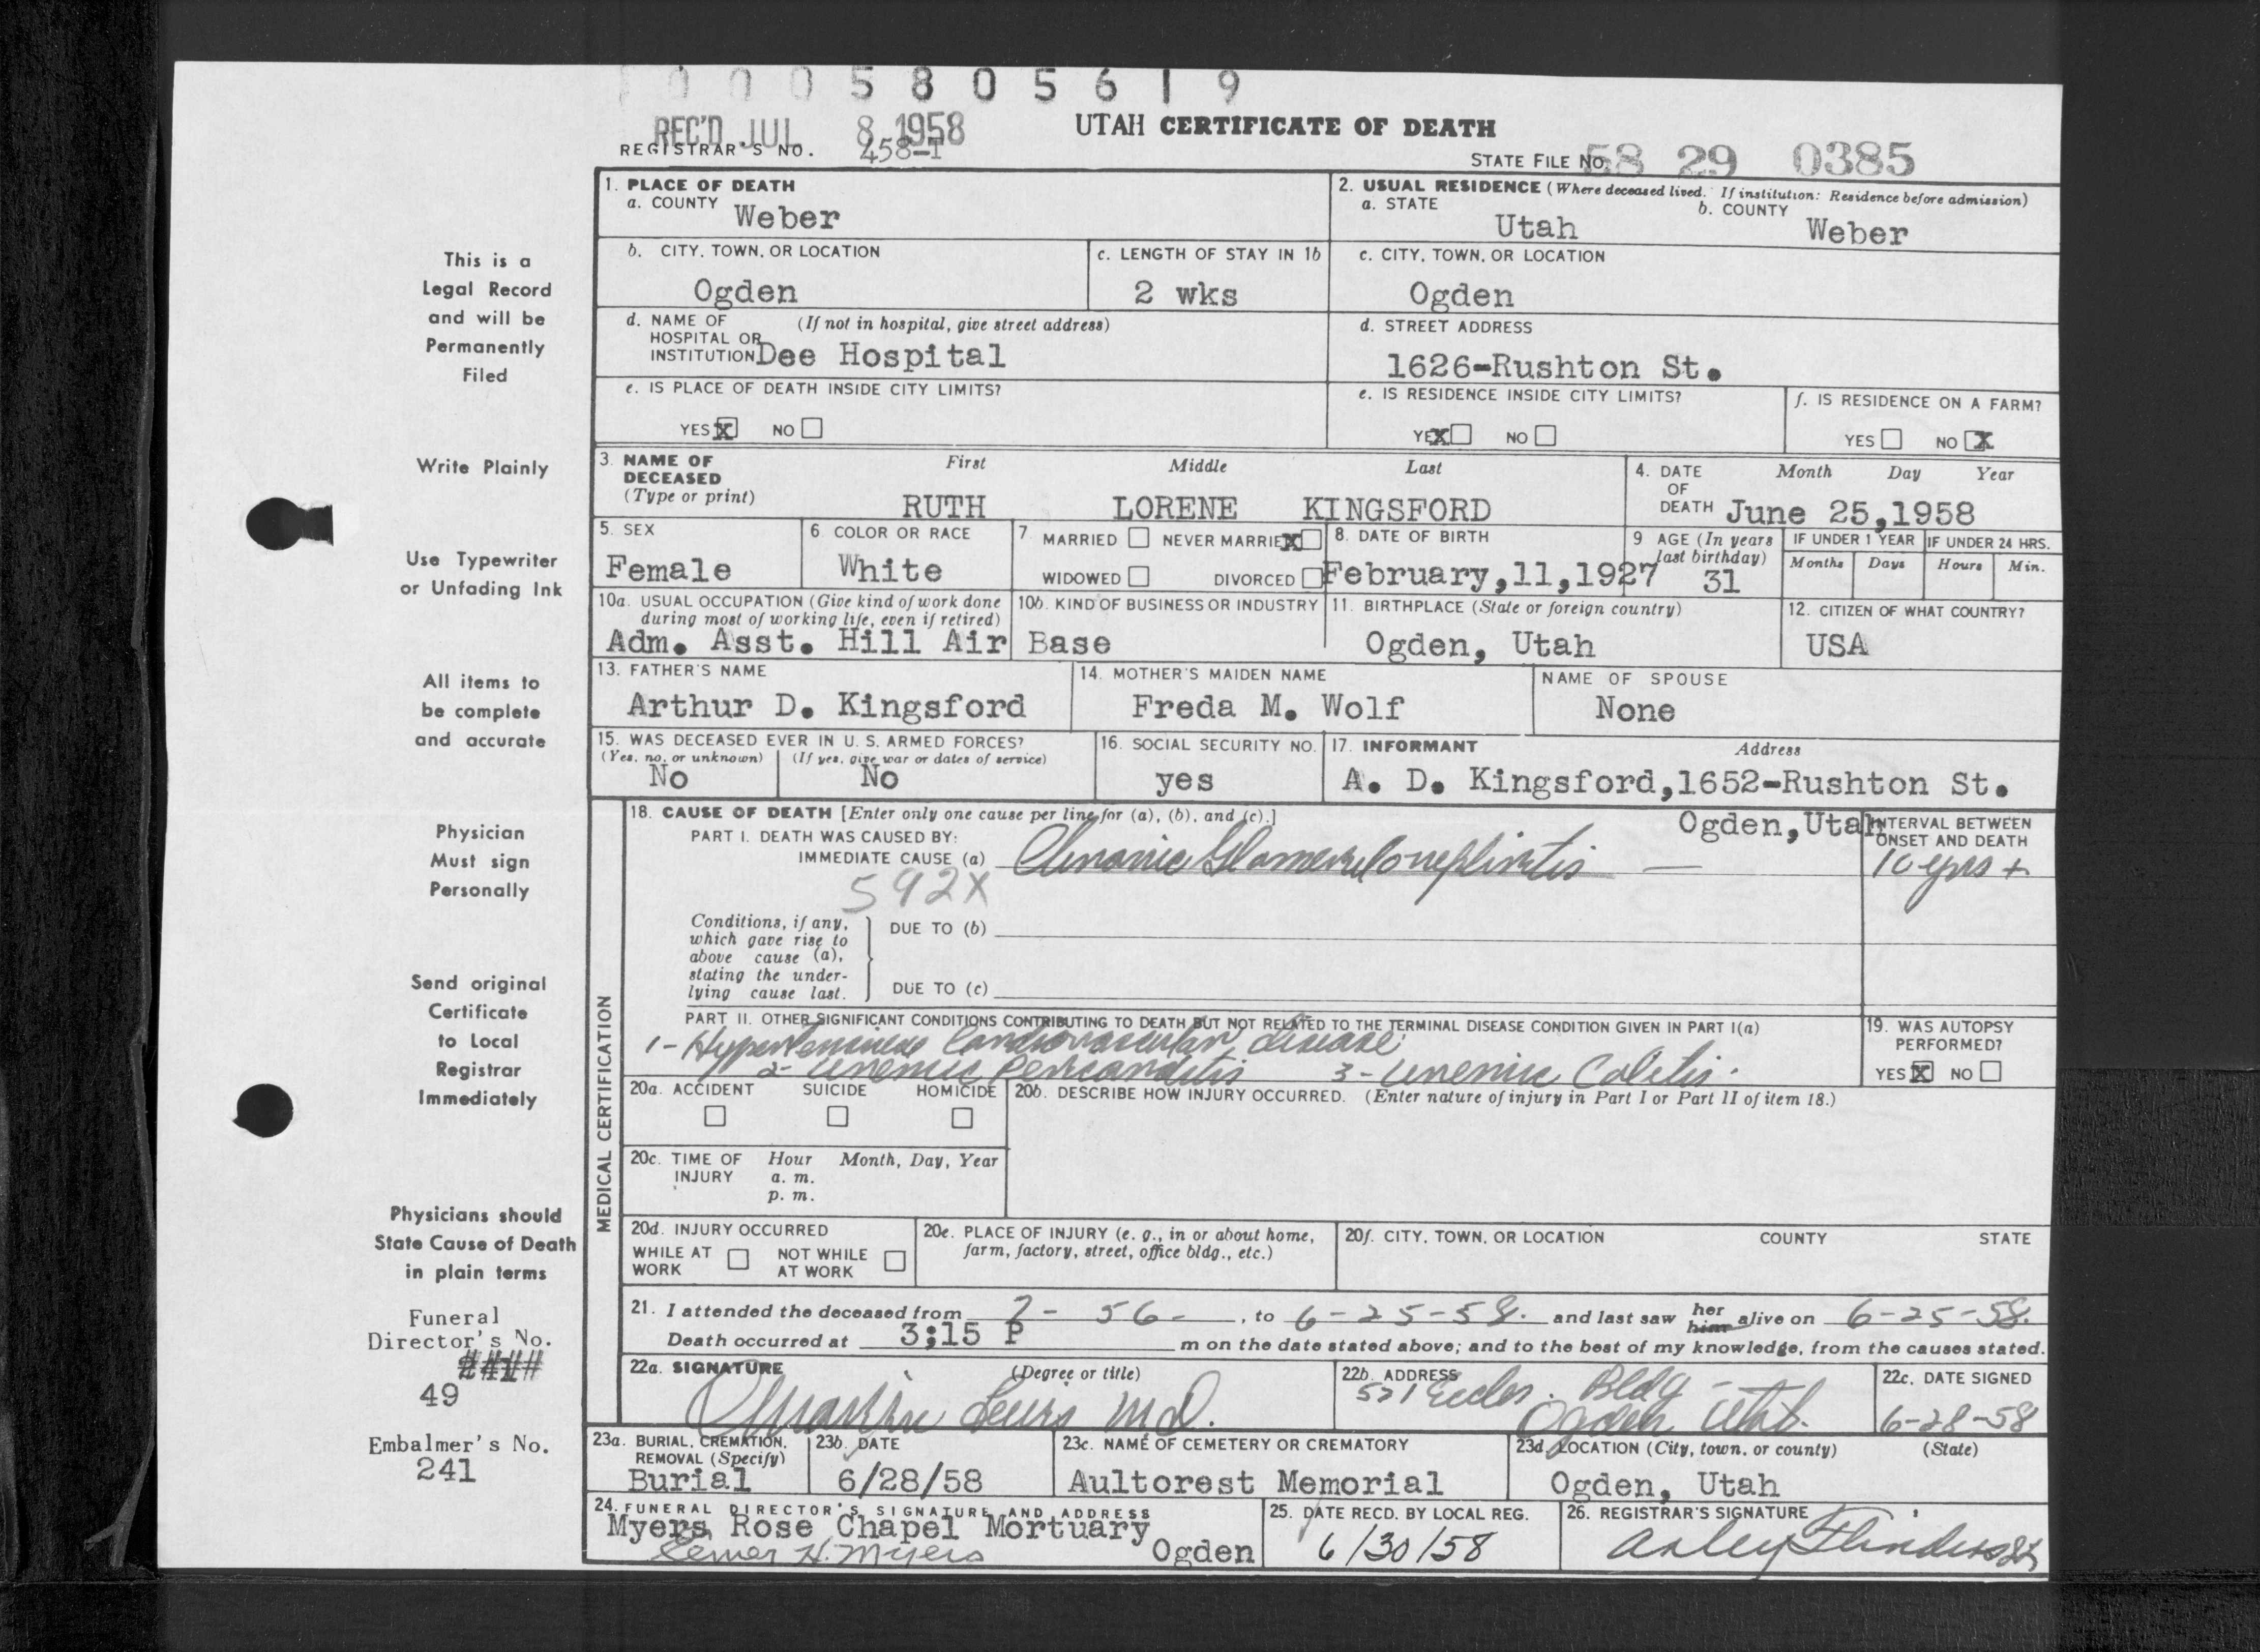 0 0 0 5 8 0 5 6 1 9
REC'D JUL 8 1958
UTAH CERTIFICATE OF DEATH
REGISTRAR'S NO. 458-I
STATE FILE NO. 58 29 0385
This is a
Legal Record
and will be
Permanently
Filed
Write Plainly
Use Typewriter
or Unfading Ink
All items to
be complete
and accurate
Physician
Must sign
Personally
Send original
Certificate
to Local
Registrar
Immediately
Physicians should
State Cause of Death
in plain terms
Funeral
Director's No.
49
Embalmer's No.
241
1. PLACE OF DEATH
a. COUNTY Weber
2. USUAL RESIDENCE (Where deceased lived. If institution: Residence before admission)
a. STATE Utah b. COUNTY Weber
b. CITY, TOWN, OR LOCATION Ogden
c. LENGTH OF STAY IN 1b 2 wks
c. CITY, TOWN, OR LOCATION Ogden
d. NAME OF (If not in hospital, give street address)
HOSPITAL OR
INSTITUTION Dee Hospital
d. STREET ADDRESS
1626-Rushton St.
e. IS PLACE OF DEATH INSIDE CITY LIMITS?
YES X NO
e. IS RESIDENCE INSIDE CITY LIMITS?
YES X NO
f. IS RESIDENCE ON A FARM?
YES NO X
3. NAME OF DECEASED (Type or print)
First Middle Last
RUTH LORENE KINGSFORD
4. DATE OF DEATH Month Day Year
June 25,1958
5. SEX
Female
6. COLOR OR RACE
White
7. MARRIED NEVER MARRIED X
WIDOWED DIVORCED
8. DATE OF BIRTH
February,11,1927
9 AGE (In years last birthday)
31
IF UNDER 1 YEAR
Months Days
IF UNDER 24 HRS.
Hours Min.
10a. USUAL OCCUPATION (Give kind of work done
during most of working life, even if retired)
10b. KIND OF BUSINESS OR INDUSTRY
Adm. Asst. Hill Air Base
11. BIRTHPLACE (State or foreign country)
Ogden, Utah
12. CITIZEN OF WHAT COUNTRY?
USA
13. FATHER'S NAME
Arthur D. Kingsford
14. MOTHER'S MAIDEN NAME
Freda M. Wolf
NAME OF SPOUSE
None
15. WAS DECEASED EVER IN U. S. ARMED FORCES?
(Yes, no, or unknown) (If yes, give war or dates of service)
No No
16. SOCIAL SECURITY NO.
yes
17. INFORMANT Address
A. D. Kingsford,1652-Rushton St.
Ogden,Utah
MEDICAL CERTIFICATION
18. CAUSE OF DEATH [Enter only one cause per line for (a), (b), and (c).]
PART I. DEATH WAS CAUSED BY:
IMMEDIATE CAUSE (a) Chronic Glomerulonephritis —
592X
INTERVAL BETWEEN
ONSET AND DEATH
10 yrs +
Conditions, if any,
which gave rise to
above cause (a),
stating the under-
lying cause last.
DUE TO (b)
DUE TO (c)
PART II. OTHER SIGNIFICANT CONDITIONS CONTRIBUTING TO DEATH BUT NOT RELATED TO THE TERMINAL DISEASE CONDITION GIVEN IN PART I(a)
1- Hypertensive Cardiovascular disease
2- uremic Pericarditis 3- uremic Colitis.
19. WAS AUTOPSY
PERFORMED?
YES X NO
20a. ACCIDENT SUICIDE HOMICIDE
20b. DESCRIBE HOW INJURY OCCURRED. (Enter nature of injury in Part I or Part II of item 18.)
20c. TIME OF INJURY Hour Month, Day, Year
a. m.
p. m.
20d. INJURY OCCURRED
WHILE AT WORK NOT WHILE AT WORK
20e. PLACE OF INJURY (e. g., in or about home,
farm, factory, street, office bldg., etc.)
20f. CITY, TOWN, OR LOCATION COUNTY STATE
21. I attended the deceased from 2- 56- , to 6-25-58. and last saw her him alive on 6-25-58.
Death occurred at 3;15 P m on the date stated above; and to the best of my knowledge, from the causes stated.
22a. SIGNATURE (Degree or title)
Lewis M.D.
22b. ADDRESS
521 Eccles. Bldg -
Ogden Utah.
22c. DATE SIGNED
6-28-58
23a. BURIAL, CREMATION,
REMOVAL (Specify)
Burial
23b. DATE
6/28/58
23c. NAME OF CEMETERY OR CREMATORY
Aultorest Memorial
23d. LOCATION (City, town, or county) (State)
Ogden, Utah
24. FUNERAL DIRECTOR'S SIGNATURE AND ADDRESS
Myers Rose Chapel Mortuary
H. Myers Ogden
25. DATE RECD. BY LOCAL REG.
6/30/58
26. REGISTRAR'S SIGNATURE